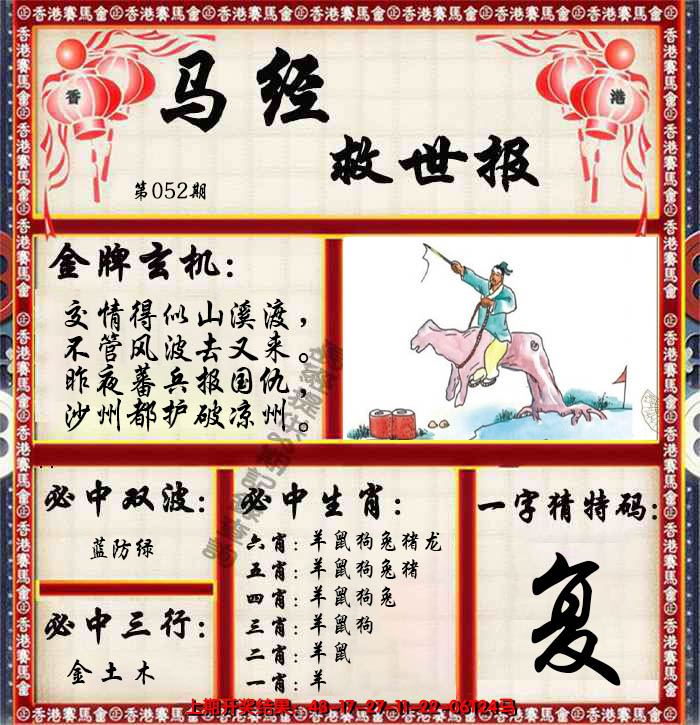 香港賽馬會
马经
救世报
香
港
第052期
金牌玄机:
交情得似山溪渡，
不管风波去又来。
昨夜蕃兵报国仇，
沙州都护破凉州。
必中双波:
蓝防绿
必中三行:
金土木
必中生肖:
六肖：羊鼠狗兔猪龙
五肖：羊鼠狗兔猪
四肖：羊鼠狗兔
三肖：羊鼠狗
二肖：羊鼠
一肖：羊
一字猜特码:
复
上期开奖结果：48-17-27-11-22-06T24马